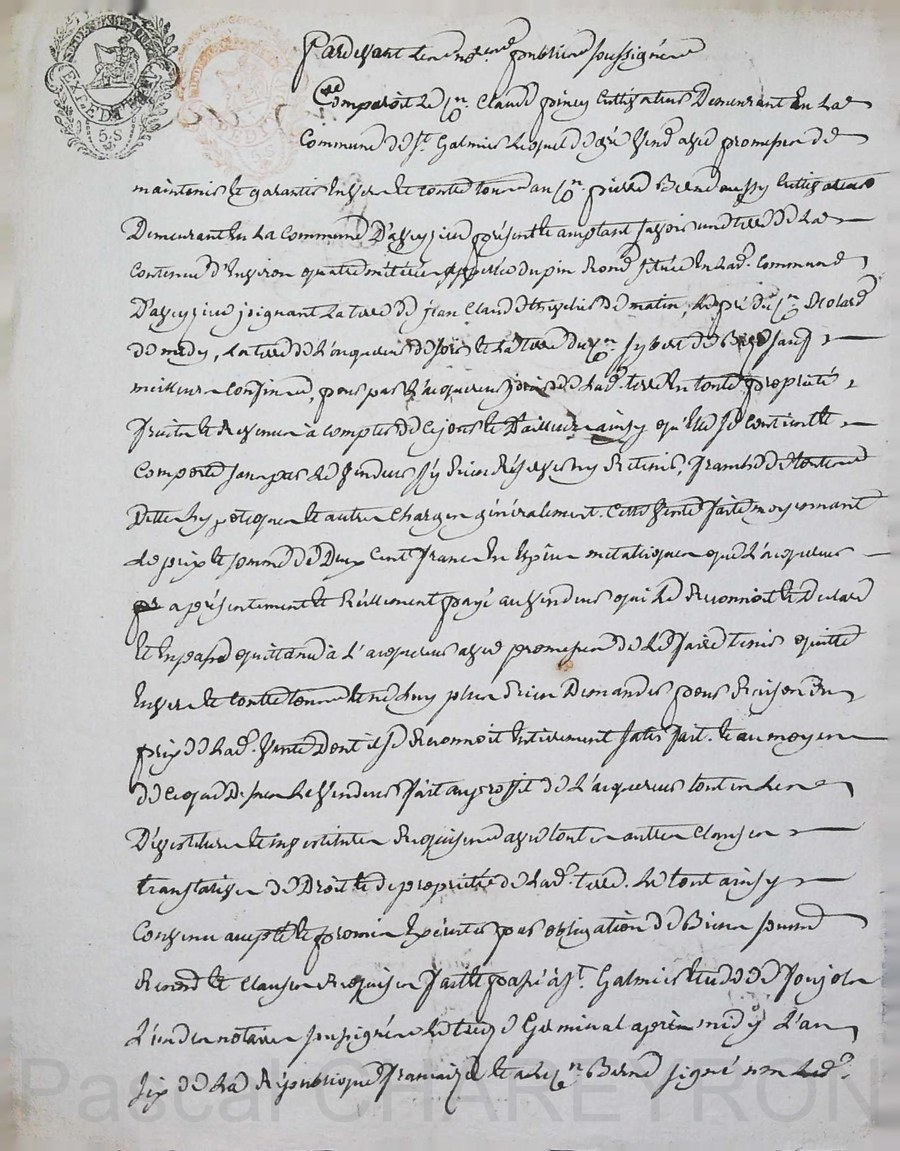 Pardevant les no.res publics soussignés
Comparoit le Cn. Claude piney Cultivateur Demeurant En La
Commune de St. Galmier Lequel de gré vend avec promesse de
maintenir et garantir Envers et contre tous au Cn. pierre Berne aussy Cultivateur
Demeurant En La Commune D'aveyzieu présent et aceptant savoir une terre de La
Contenue d'Environ quatre métérées appellée du pin Rond située En Lad. commune
D'aveyzieu joignant La terre de jean Claude de matin, Le pré du Cn.
de midy, La terre de L'acquereur de soir et La terre du Cn. de Bize sauf
meilleurs confins, pour par L'acquereur jouir de Lad. terre En toute propriété,
fruits et Revenus à compter de ce jour et D'ailleurs ainsy qu'Elle se contient et
Comporte sans par Le vendeur s'y Rien Réserver ny Retenir, franche de toutes
Dettes hypoteques et autres Charges généralement. Cette vente faite moyennant
Le prix et somme de Deux Cent francs En Espèces métaliques que L'acquereur
a présentement et Réellement payé au vendeur qui Le Reconnoit et Déclare
Et En passe quittance à L'acquereur avec promesse de Le faire tenir quitte
Envers et contre tous et ne Luy plus Rien Demander pour Raison du
prix de Lad. vente Dont il se Reconnoit Entierement satisfait. et au moyen
de ce que Dessus Le vendeur fait au proffit de L'acquereur toutes Les
Dévestitures et investitures Requises avec toutes autres Clauses
translatives de Droit et de propriété de Lad. terre. Le tout ainsy
Convenu accepté et promis Exécuter par obligation de Biens soumis
Renon et Clauses Requises fait et passé à St. Galmier Etude de
L'un des notaires soussignés Le treize Germinal après midy L'an
six de La République francaise et a Le Cn. Berne signé non Led.
5.S
Pascal CHAREYRON